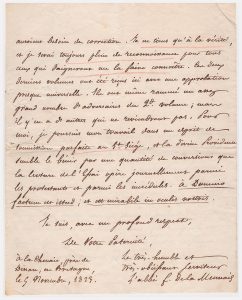 aucune besoin de correction. Je ne tiens qu'à la vérité,
et je serai toujours plein de reconnaissance pour tous
ceux qui daigneront me la faire connoître. Les deux
derniers volumes ont été reçus ici avec une approbation
presque universelle. Ils ont même ramené un assez
grand nombre d'adversaires du 2d. volume; mais
il y en a de maîtres qui ne reviendront pas. Pour
moi, je poursuis mon travail dans un esprit de
soumission parfaite au St. Siège, et la divine Providence
semble le bénir par une quantité de conversions que
la lecture de l'Essai opère journellement parmi
les protestants et parmi les incrédules. A Domino
factum est istud, et est mirabile in oculis nostris.
Je suis, avec un profond respect,
De Votre Paternité,
à la Chenaie, près de
Dinan, en Bretagne,
le 5 Novembre, 1825.
Le très-humble et
très-obéissant serviteur
L'abbé F. de la Mennais